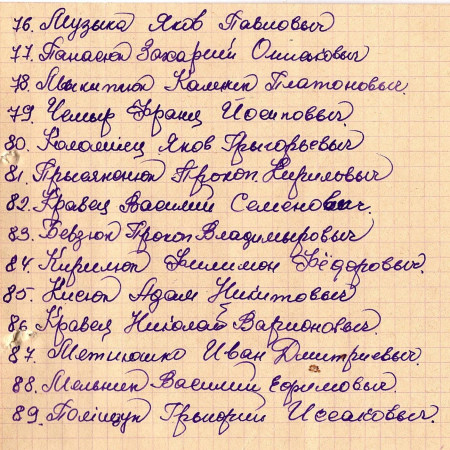 76. Музыка Яков Павловыч
77. Панасюк Захарий Олиаковыч
78. Мыкитюк Каленик Платоновыч.
79. Чемыр Франц Иосиповыч
80. Коломіец Яков Грыгорьевыч
81. Прокоп Кириловыч
82. Кравец Василий Семеновыч.
83. Бевзюк Прокоп Владимыровыч
84. Кирилюк Филимон Фёдоровыч.
85. Кисюк Адам Никитовыч
86. Кравец Николай Варионовыч.
87. Метиюшко Иван Дмитриевыч.
88. Мельник Василий Ефимовыч.
89. Поліщук Грыгорий Иссаковыч.